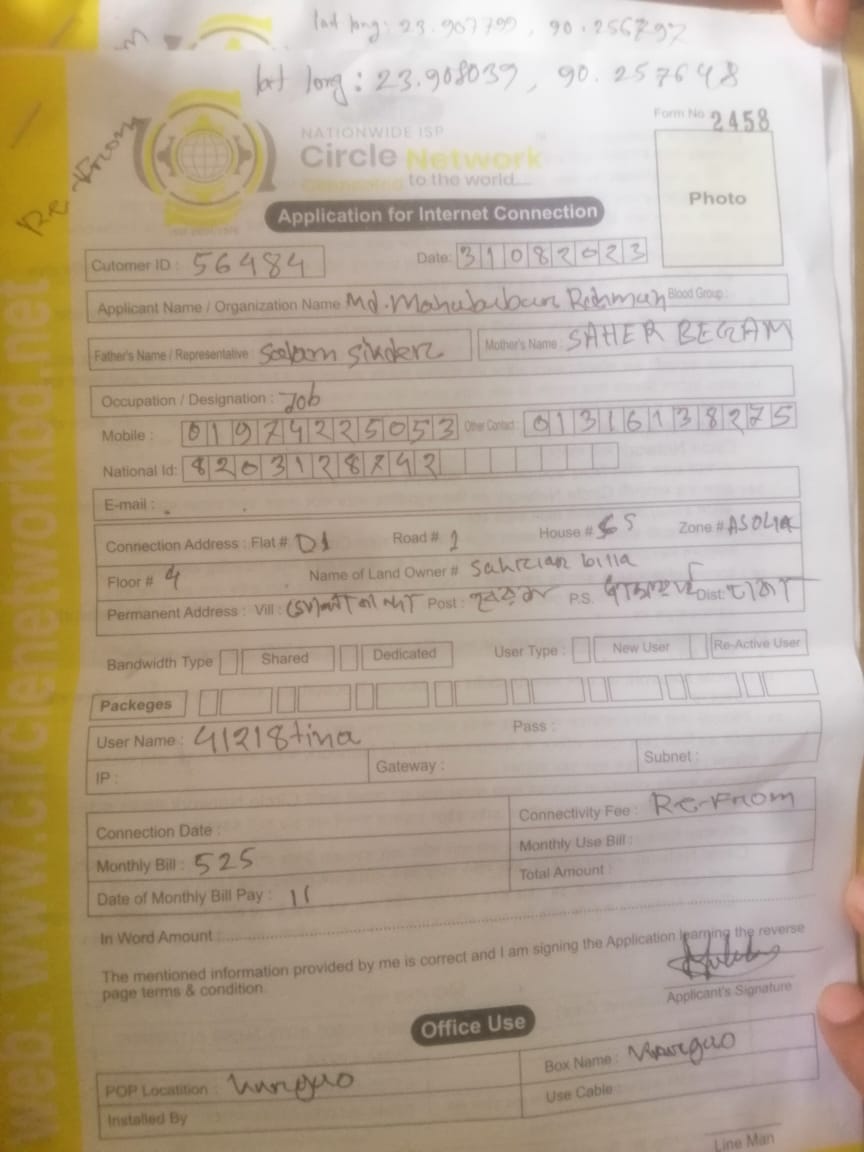 lat long: 23.907799, 90.256797
lat long: 23.908039, 90.257648
Re-From
Form No 2458
NATIONWIDE ISP
Circle Network
Connecting to the world....
Photo
Application for Internet Connection
Cutomer ID: 56484 Date: 31082023
Applicant Name / Organization Name Md. Mahububur Rahman Blood Group:
Father's Name / Representative Mother's Name: SAHER BEGAM
Occupation / Designation: Job
Mobile: 01974225053 Other Contact: 01316138275
National Id: 8203128742
E-mail:
Connection Address: Flat # D1 Road # 2 House # 65 Zone # ASOLIA
Floor # 4 Name of Land Owner # billa
Permanent Address: Vill: Post: P.S. Dist: ঢাকা
Bandwidth Type Shared Dedicated User Type: New User Re-Active User
Packeges
User Name: 41218tina Pass:
IP: Gateway: Subnet:
Connection Date: Connectivity Fee: Re-From
Monthly Bill: 525 Monthly Use Bill:
Date of Monthly Bill Pay: 11 Total Amount:
In Word Amount:
The mentioned information provided by me is correct and I am signing the Application learning the reverse
page terms & condition.
Applicant's Signature
Office Use
POP Locatition: Box Name:
Installed By Use Cable:
Line Man
web: www.circlenetworkbd.net